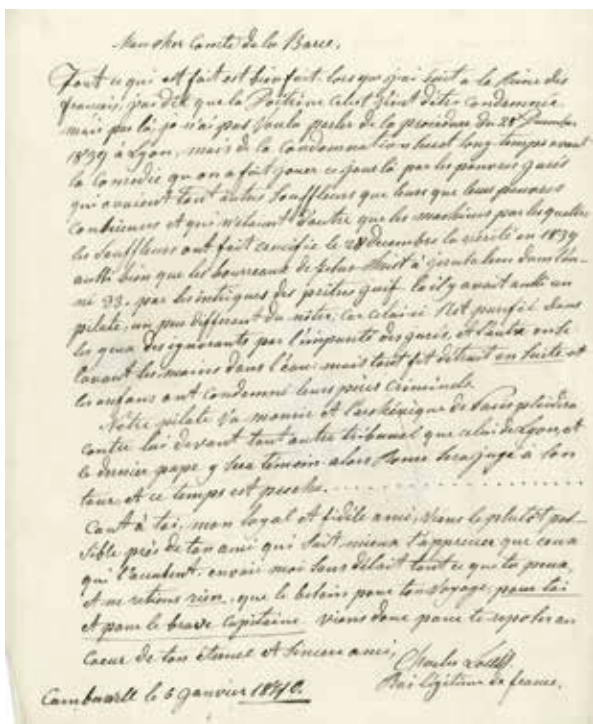 Mon cher Comte de la Barre,
Tout ce qui est fait est bien fait. lorsque j'ai écrit a la Reine des
français, j'ai dit que la Doctrine Celeste vient d'être condamnée
mais par là, je n'ai pas voulu parler de la procédure du 28 Decembre
1839 à Lyon, mais de la Condamnation long temps avant
la Comédie qu'on a fait jouer ce jour là par les pauvres jurés
qui avaient tout autres Souffleurs que leurs que leurs pauvres
consciences et qui n'etaient d'autre que les machines par lesquelles
les Souffleurs ont fait crucifié le 28 decembre la vérité en 1839
aussi bien que les bourreaux de Jesus Christ à jerusalem dans l'an-
né 33. par les intrigues des prêtres juif là il y avait aussi un
pilate, un peu different du nôtre, car celui ci s'est purifié dans
les yeux des ignorants par l'impureté des jurés, et l'autre en se
lavant les mains dans l'eau: mais tout fut detruit en suite et
les enfans ont condamné leurs peres criminels.
Nôtre pilate va mourir et l'archévêque de Paris plaidera
contre lui devant tout autre tribunal que celui de Lyon, et
le dernier pape y sera temoin alors Rome sera jugé a son
tour, et ce temps est proche. . . . . . . . . . . . . . .
Cant à toi, mon loyal et fidèle ami, viens le plutôt pos-
sible près de ton ami qui sait mieux t'apprecier que ceux
qui t'accusent. envoie moi sans délait tout ce que tu peux,
et ne retiens rien, que le besoin pour ton voyage, pour toi
et pour le brave Capitaine viens donc pour te reposer au
Coeur de ton éternel et sincere ami,
Charles Louis
Roi légitime de france.
Camberwell le 6 janvier 1840.